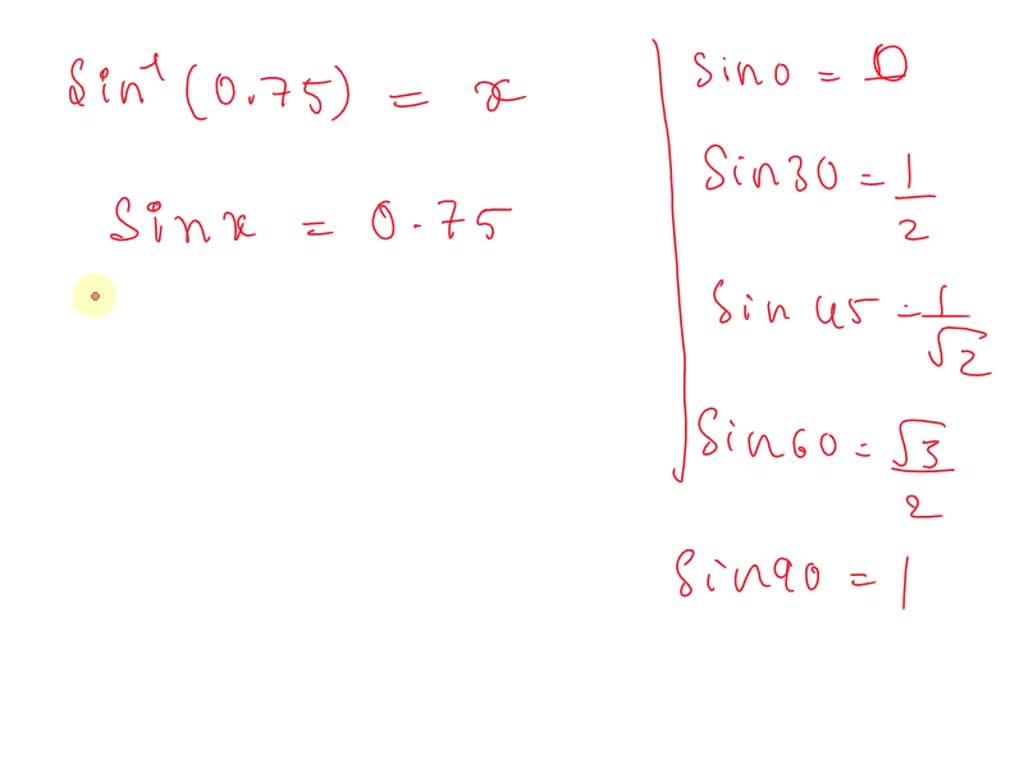 Sin⁻¹(0.75) = x
Sinx = 0.75
Sin0 = 0
Sin30 = 1/2
Sin45 = 1/√2
Sin60 = √3/2
Sin90 = 1